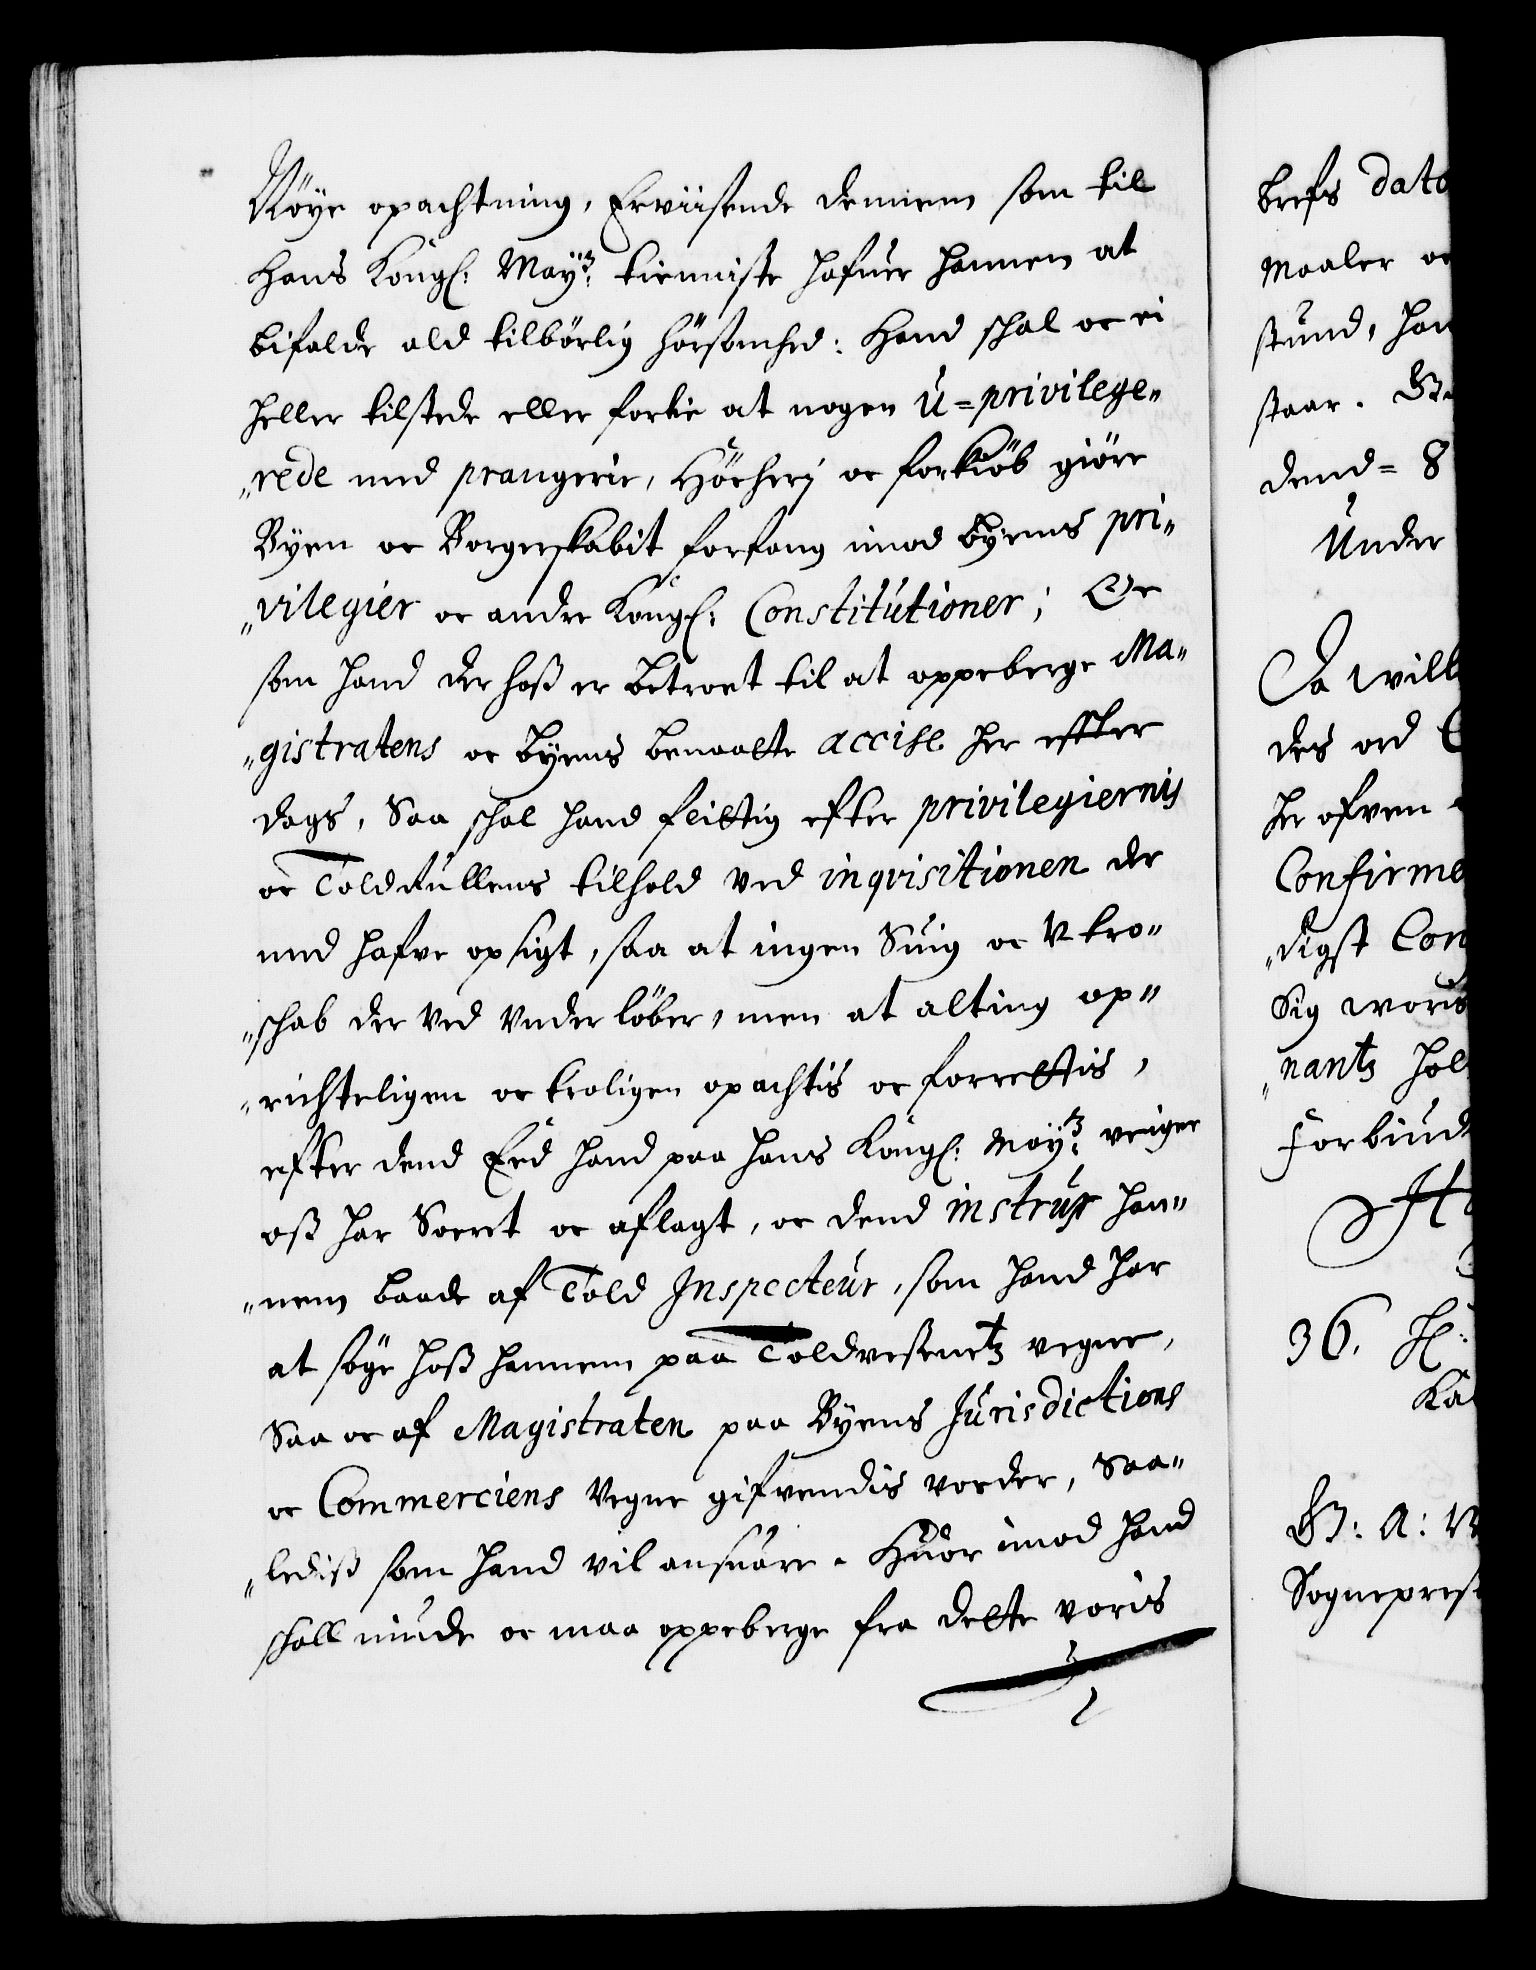 Nöye opachtning, Erviisende dennem som til
Hans Kongl: Mayᵗᶻ: tienniste hafuer hannem at
bifalde ald tilbörlig hörsomhed: Hand schal oc ei
heller tilstede eller fortie at nogen U=privilege„
„rede med prangerie, Höcherj oc forkiöb giöre
Byen oc Borgerskabit forfang imod byens pri„
„vilegier oc andre Kongl: Constitutioner; Oc
som hand der hoß er betroet til at oppeberge Ma„
„gistratens oc byens benaatte accise her effter
dags, Saa schal hand flittig efter privilegiernis
oc Toldrullens tilhold ved inqvisitionen der
med hafve opsigt, saa at ingen Suig oc Vtro„
„schab der ved vnderlöber, men at alting op„
„richteligen oc troligen opachtis oc forrettis,
efter dend Eed hand paa hans Kongl: Mayᵗᶻ: veigne
oß har Soeret oc aflagt, oc dend instrux han„
„nem baade af Told Inspecteur, som hand har
at söge hoß hannem paa Toldvesenetz vegne,
Saa oc af Magistraten paa Byens Jurisdictions
oc Commerciens Vegne gifvendis vorder, Saa„
„lediß som hand vil ansuare. Huor imod hand
schall niude oc maa oppeberge fra dette voris
brefs dato
Maaler oc
stund, han
staar.
dend= 8
Under
Da will
des ord
her ofven
Confirme
„digst Con
Sig woris
„nantz hol
Forbiud
36. H:
G: A:
Sogneprest